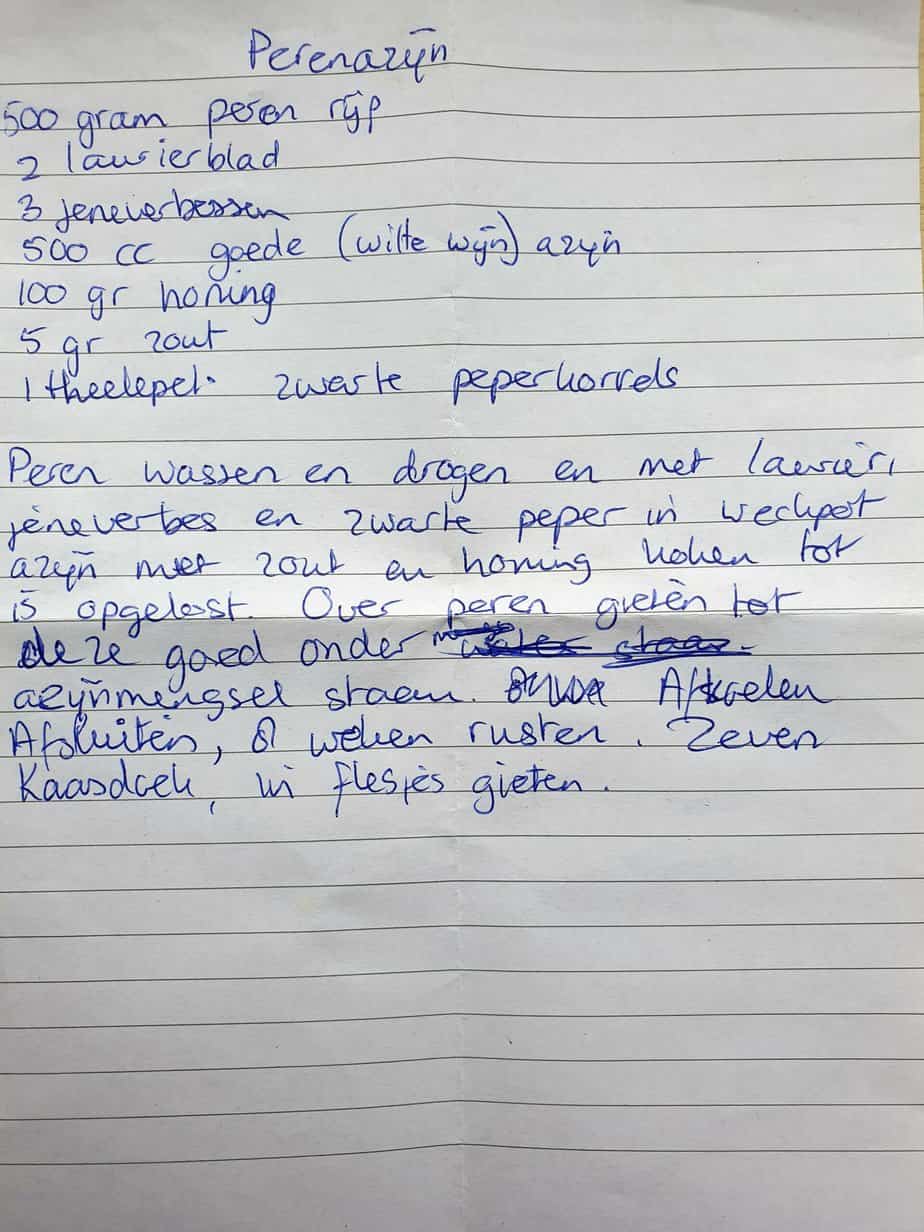 Perenazijn
500 gram peren rijp
2 laurierblad
3 jeneverbessen
500 cc goede (witte wijn) azijn
100 gr honing
5 gr zout
1 theelepel. zwarte peperkorrels
Peren wassen en drogen en met laurier,
jeneverbes en zwarte peper in weckpot
azijn met zout en honing koken tot
is opgelost. Over peren gieten tot
deze goed onder
azijnmengsel staan. Afkoelen
Afsluiten, 8 weken rusten. Zeven
Kaasdoek, in flesjes gieten.